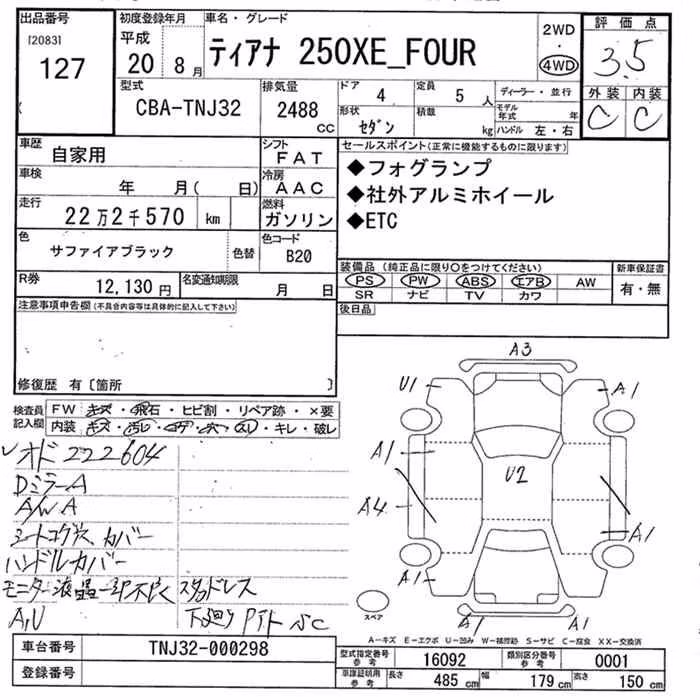 出品番号
[2083]
127
初度登録年月
平成
20 8 月
車名・グレード
ティアナ 250XE_FOUR
2WD
4WD
評価点
3.5
外装 内装
C C
型式
CBA-TNJ32
排気量
2488
CC
ドア
4
定員
5 人
形状
セダン
積載
kg
ディーラー・並行
モデル年式 年
ハンドル 左・右
車歴
自家用
シフト
FAT
車検
年 月( 日)
冷房
AAC
走行
22万2千570 km
燃料
ガソリン
色
サファイアブラック
色替
色コード
B20
R券
12,130 円
名変通知期限
月 日
セールスポイント(正常に機能するものに限ります)
◆フォグランプ
◆社外アルミホイール
◆ETC
装備品(純正品に限り○をつけてください)
PS PW ABS エアB AW
SR ナビ TV カワ
新車保証書
有・無
後日品
注意事項申告欄(不具合内容等は具体的に記入して下さい)
修復歴 有〔箇所 〕
検査員記入欄
FW キズ・飛石・ヒビ割・リペア跡・×要
内装 キズ・汚レ・コゲ・穴・スリ・キレ・破レ
オド 222604
Dミラー A
A/W A
シートコゲ穴、カバー
ハンドルカバー
モニター液晶一部不良
スタッドレス
A,U
下廻りPイト
A3
U1
A1
A1
U2
A4
A1
A1
A1
A1
スペア
A-キズ E-エクボ U-凹み W-補修跡 S-サビ C-腐食 XX-交換済
車台番号
TNJ32-000298
登録番号
型式指定番号 参考
16092
類別区分番号 参考
0001
車庫証明用 参考
長さ 485 cm
幅 179 cm
高さ 150 cm